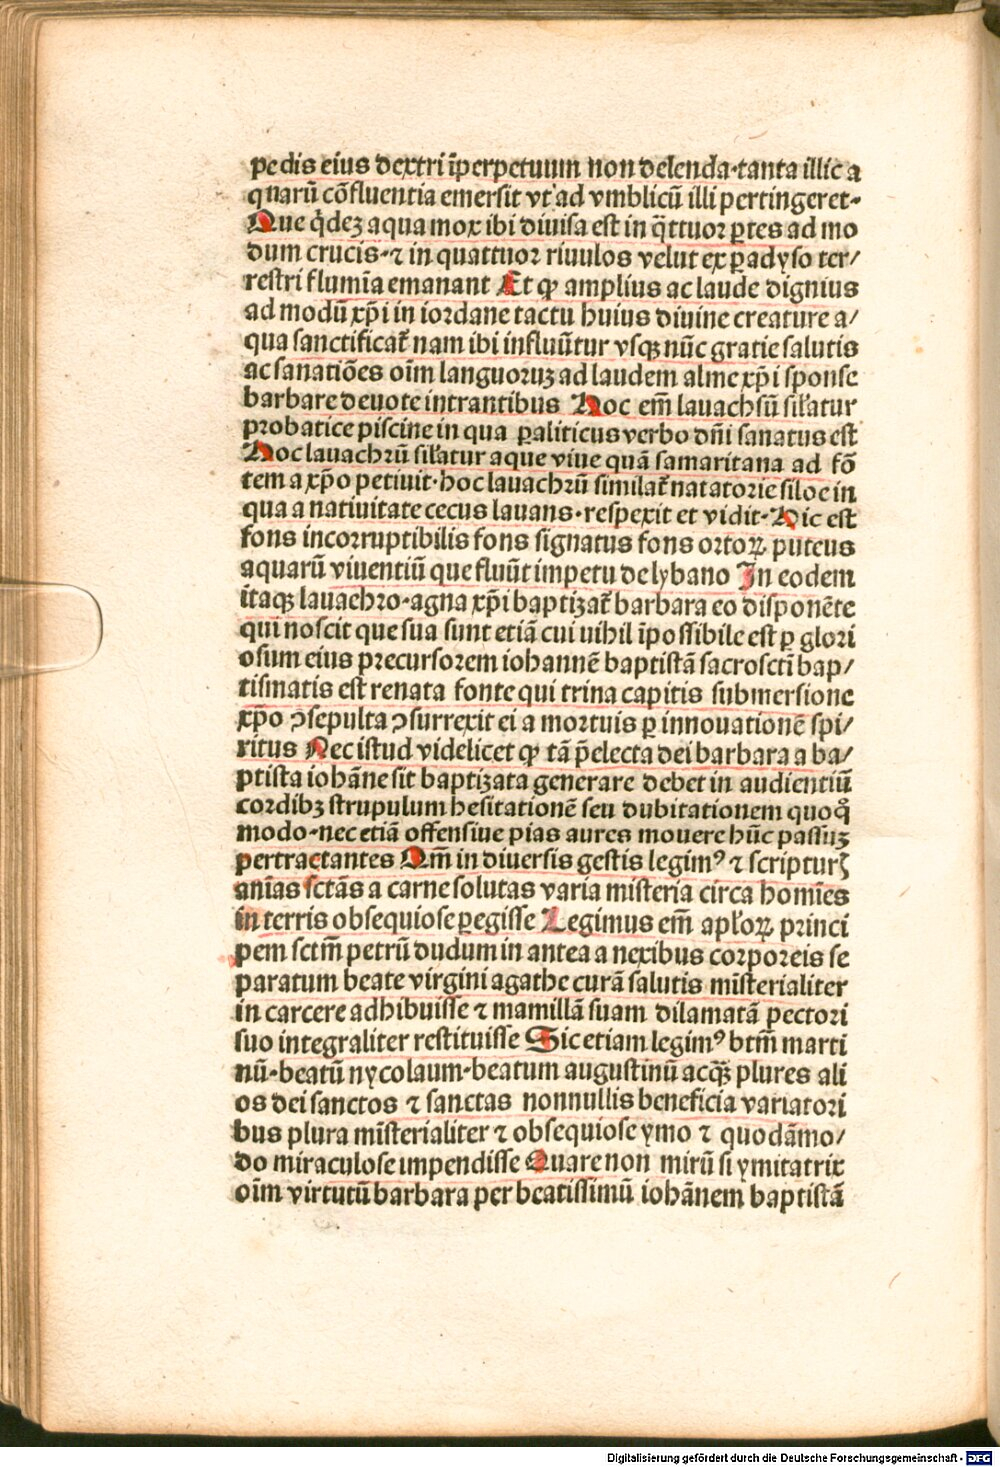 pedis eius dextri īperpetuum non delenda·tanta illic a
quarū cōfluentia emersit vt ad vmblicū illi pertingeret·
Que q̇dez aqua mox ibi diuisa est in q̄ttuor ꝑtes ad mo
dum crucis·⁊ in quattuor riuulos velut ex ꝑadyso ter/
restri flumīa emanant Et ꝙ amplius ac laude dignius
ad modū xp̄i in iordane tactu huius diuine creature a/
qua sanctificat᷑ nam ibi influūtur vsqꝫ nūc gratie salutis
ac sanatiōes oīm languoruꝫ ad laudem alme xp̄i sponse
barbare deuote intrantibus Hoc em̄ lauachsū sil̓atur
probatice piscine in qua ꝑaliticus verbo dn̄i sanatus est
Hoc lauachrū sil̓atur aque viue quā samaritana ad fō
tem a xp̄o petiuit·hoc lauachrū similat᷑ natatorie siloe in
qua a natiuitate cecus lauans·respexit et vidit·Hic est
fons incorruptibilis fons signatus fons ortoꝝ puteus
aquarū viuentiū que fluūt impetu de lybano In eodem
itaqꝫ lauachro·agna xp̄i baptizat᷑ barbara eo disponēte
qui noscit que sua sunt etiā cui uihil īpossibile est ꝑ glori
osum eius precursorem iohannē baptistā sacrosctī bap/
tismatis est renata fonte qui trina capitis submersione
xp̄o ꝯsepulta ꝯsurrexit ei a mortuis ꝑ innouationē spi/
ritus Nec istud videlicet ꝙ tā p̄electa dei barbara a ba/
ptista iohāne sit baptizata generare debet in audientiū
cordibꝫ strupulum hesitationē seu dubitationem quoq̊
modo·nec etiā offensiue pias aures mouere hūc passūꝫ
pertractantes Qm̄ in diuersis gestis legimꝰ ⁊ scripturꝭ
anīas sctās a carne solutas varia misteria circa homīes
in terris obsequiose ꝑegisse Legimus em̄ apl̓oꝝ princi
pem sctm̄ petrū dudum in antea a nexibus corporeis se
paratum beate virgini agathe curā salutis mīsterialiter
in carcere adhibuisse ⁊ mamillā suam dilamatā pectori
suo integraliter restituisse Sic etiam legimꝰ btm̄ marti
nū·beatū nycolaum·beatum augustinū acqꝫ plures ali
os dei sanctos ⁊ sanctas nonnullis beneficia variatori
bus plura mīsterialiter ⁊ obsequiose ymo ⁊ quodāmo/
do miraculose impendisse Quare non mirū si ymitatrix
oīm virtutū barbara per beatissimū iohānem baptistā
Digitalisierung gefördert durch die Deutsche Forschungsgemeinschaft - DFG